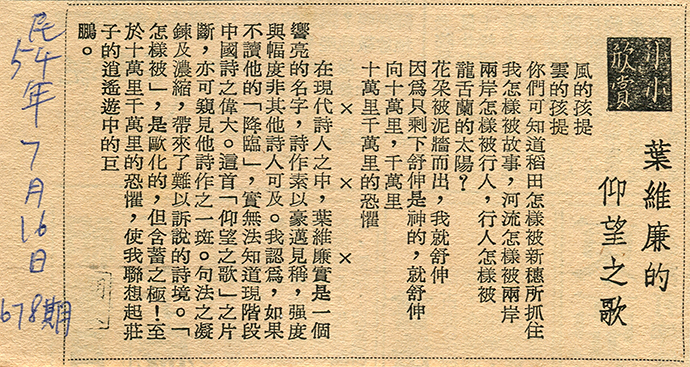 小小
欣賞
葉維廉的
仰望之歌
風的孩提
雲的孩提
你們可知道稻田怎樣被新穗所抓住
我怎樣被故事，河流怎樣被兩岸
兩岸怎樣被行人，行人怎樣被
龍舌蘭的太陽？
花朶被泥牆而出，我就舒伸
因爲只剩下舒伸是神的，就舒伸
向十萬里，千萬里
十萬里千萬里的恐懼
× × ×
在現代詩人之中，葉維廉實是一個
響亮的名字，詩作素以豪邁見稱，强度
與幅度非其他詩人可及。我認爲，如果
不讀他的「降臨」，實無法知道現階段
中國詩之偉大。這首「仰望之歌」之片
斷，亦可窺見他詩作之一斑。句法之凝
鍊及濃縮，帶來了難以訴說的詩境。「
怎樣被」，是歐化的，但含蓄之極！至
於十萬里千萬里的恐懼，使我聯想起莊
子的逍遙遊中的巨
鵬。
民54年7月16日
678期